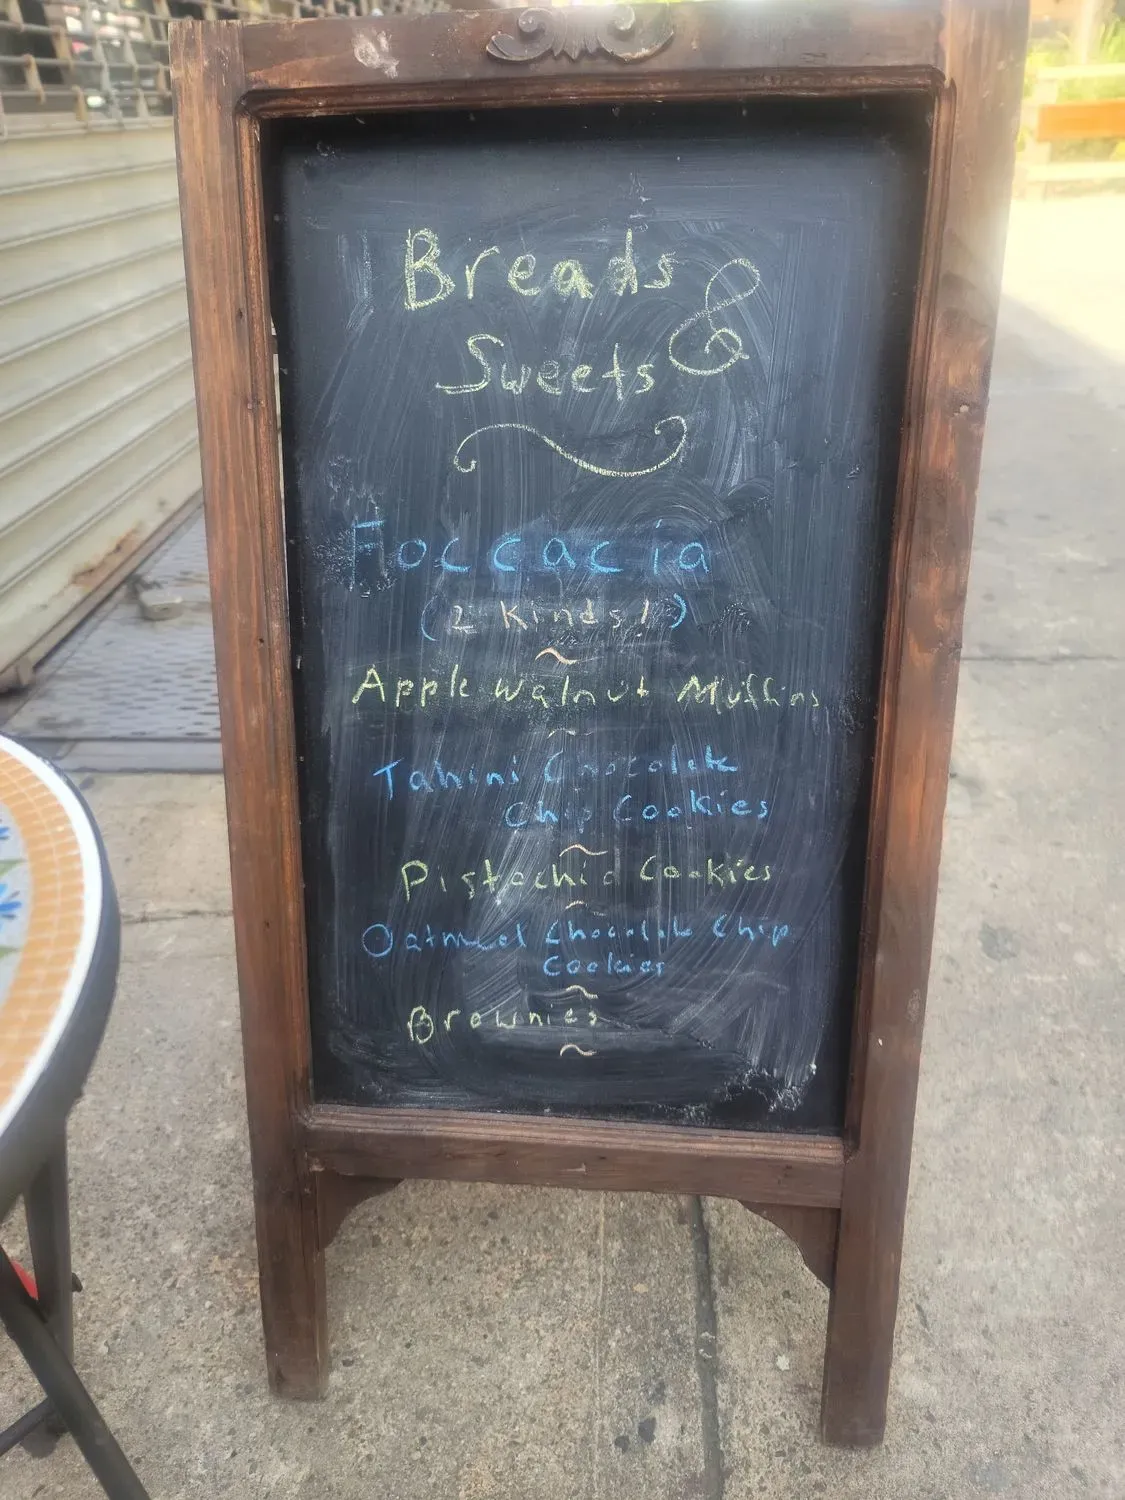 Breads &
Sweets
Foccacia
(2 Kinds!)
~
Apple Walnut Muffins
~
Tahini Chocolate
Chip Cookies
~
Pistachio Cookies
~
Oatmeal Chocolate Chip
Cookies
~
Brownies
~